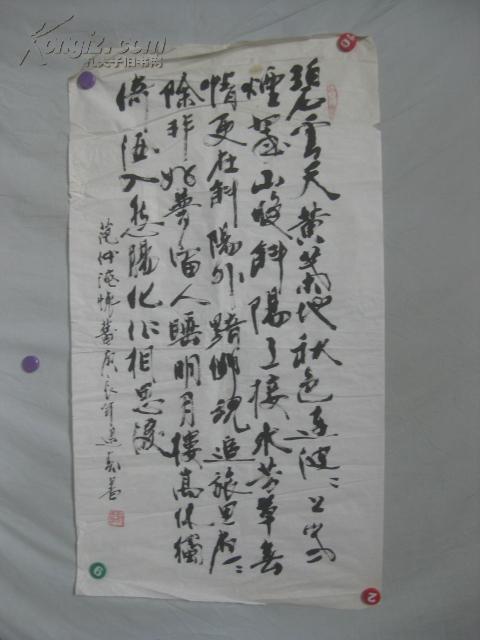 碧雲天黄葉地秋色連波〻上寒
煙翠山映斜陽天接水芳草無
情更在斜陽外黯鄉魂追旅思夜〻
除非好夢留人睡明月樓高休獨
倚酒入愁腸化作相思淚
范仲淹懷舊
孔夫子旧书网
2